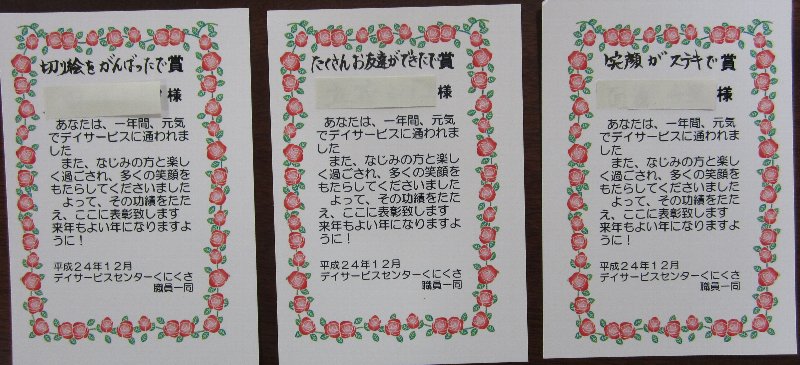 切り絵をがんばったで賞
様
あなたは、一年間、元気
でデイサービスに通われま
した
また、なじみの方と楽し
く過ごされ、多くの笑顔を
もたらしてくださいました
よって、その功績をたた
え、ここに表彰致します
来年もよい年になりますよ
うに！
平成24年12月
デイサービスセンターくにくさ
職員一同
たくさんお友達ができたで賞
様
あなたは、一年間、元気
でデイサービスに通われま
した
また、なじみの方と楽し
く過ごされ、多くの笑顔を
もたらしてくださいました
よって、その功績をたた
え、ここに表彰致します
来年もよい年になりますよ
うに！
平成24年12月
デイサービスセンターくにくさ
職員一同
笑顔がステキで賞
様
あなたは、一年間、元気
でデイサービスに通われま
した
また、なじみの方と楽し
く過ごされ、多くの笑顔を
もたらしてくださいました
よって、その功績をたた
え、ここに表彰致します
来年もよい年になりますよ
うに！
平成24年12月
デイサービスセンターくにくさ
職員一同